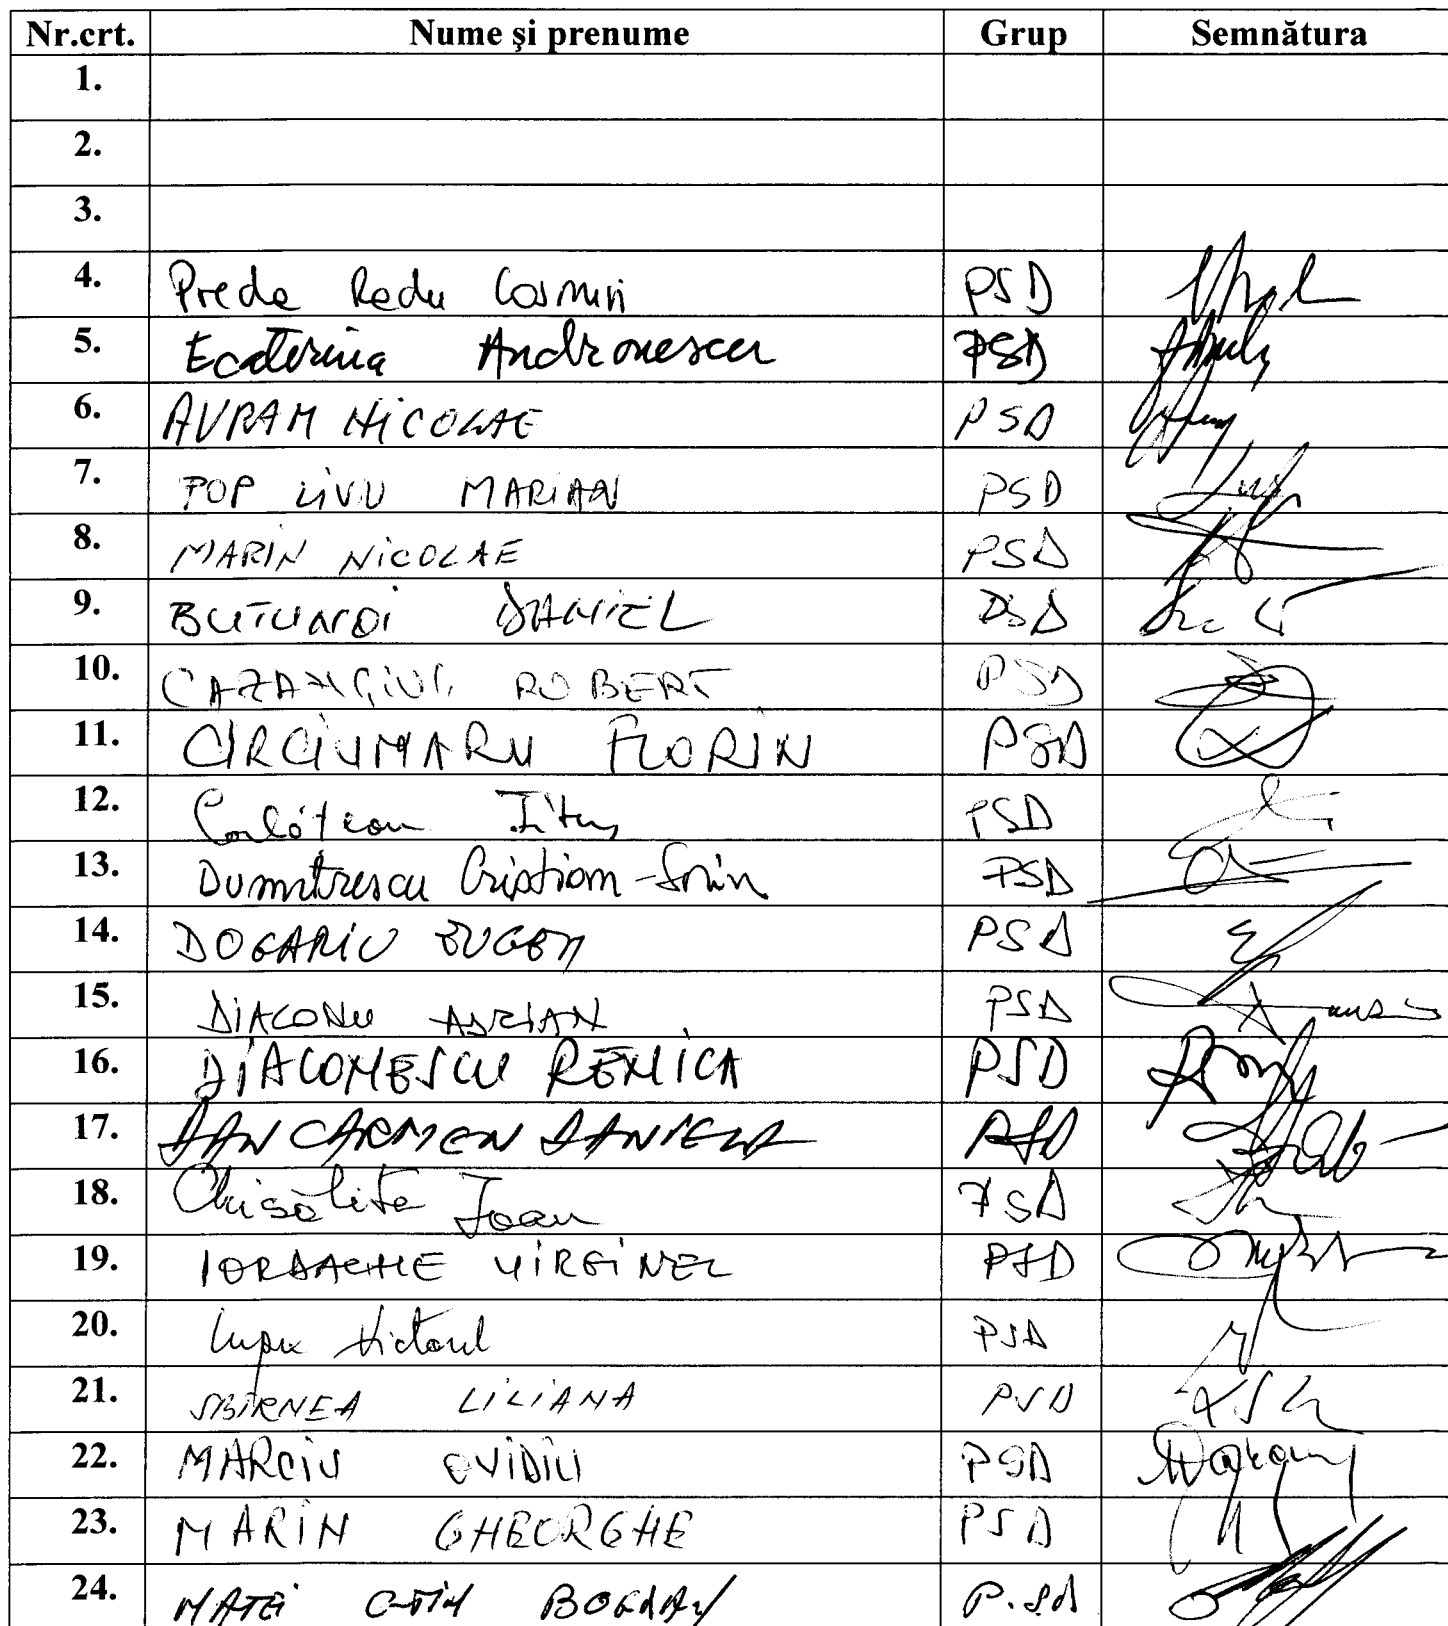 Nr.crt. Nume şi prenume Grup Semnătura
1.
2.
3.
4. Preda Radu Cosmin PSD
5. Ecaterina Andronescu PSD
6. AVRAM NICOLAE PSD
7. POP LIVIU MARIAN PSD
8. MARIN NICOLAE PSD
9. BUTUNOI DANIEL PSD
10. CAZANCIUC ROBERT PSD
11. CIRCIUMARU FLORIN PSD
12. Corlățean Titus PSD
13. Dumitrescu Cristian-Sorin PSD
14. DOGARIU EUGEN PSD
15. DIACONU ADRIAN PSD
16. DIACONESCU RENICA PSD
17. DAN CARMEN DANIELA PSD
18. Chisăliță Ioan PSD
19. IORDACHE VIRGINEL PSD
20. Lupu Victorel PSD
21. SBÎRNEA LILIANA PSD
22. MARCIU OVIDIU PSD
23. MARIN GHEORGHE PSD
24. MATEI BOGDAN P.SD